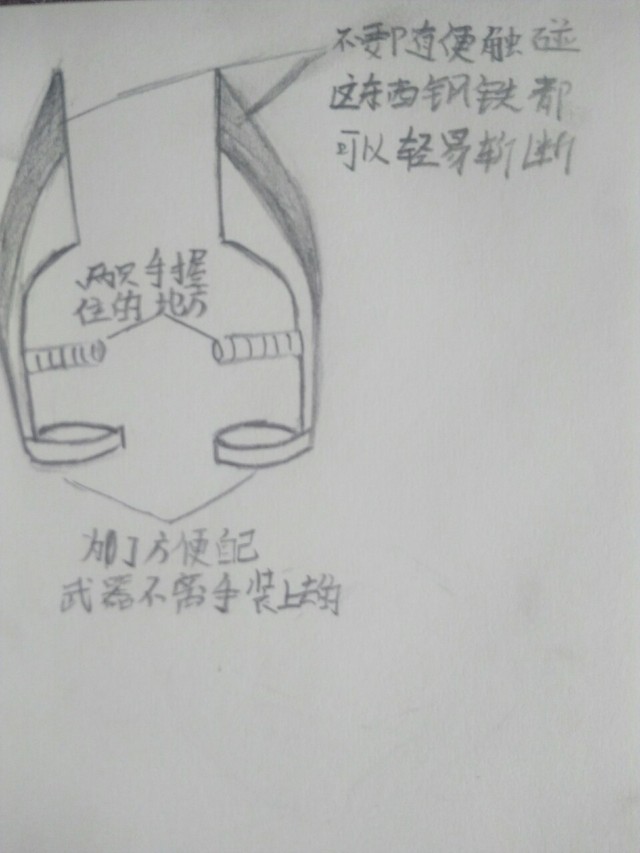 不要随便触碰
这东西钢铁都
可以轻易斩断
两只手握
住的地方
为了方便配
武器不离手装上去的